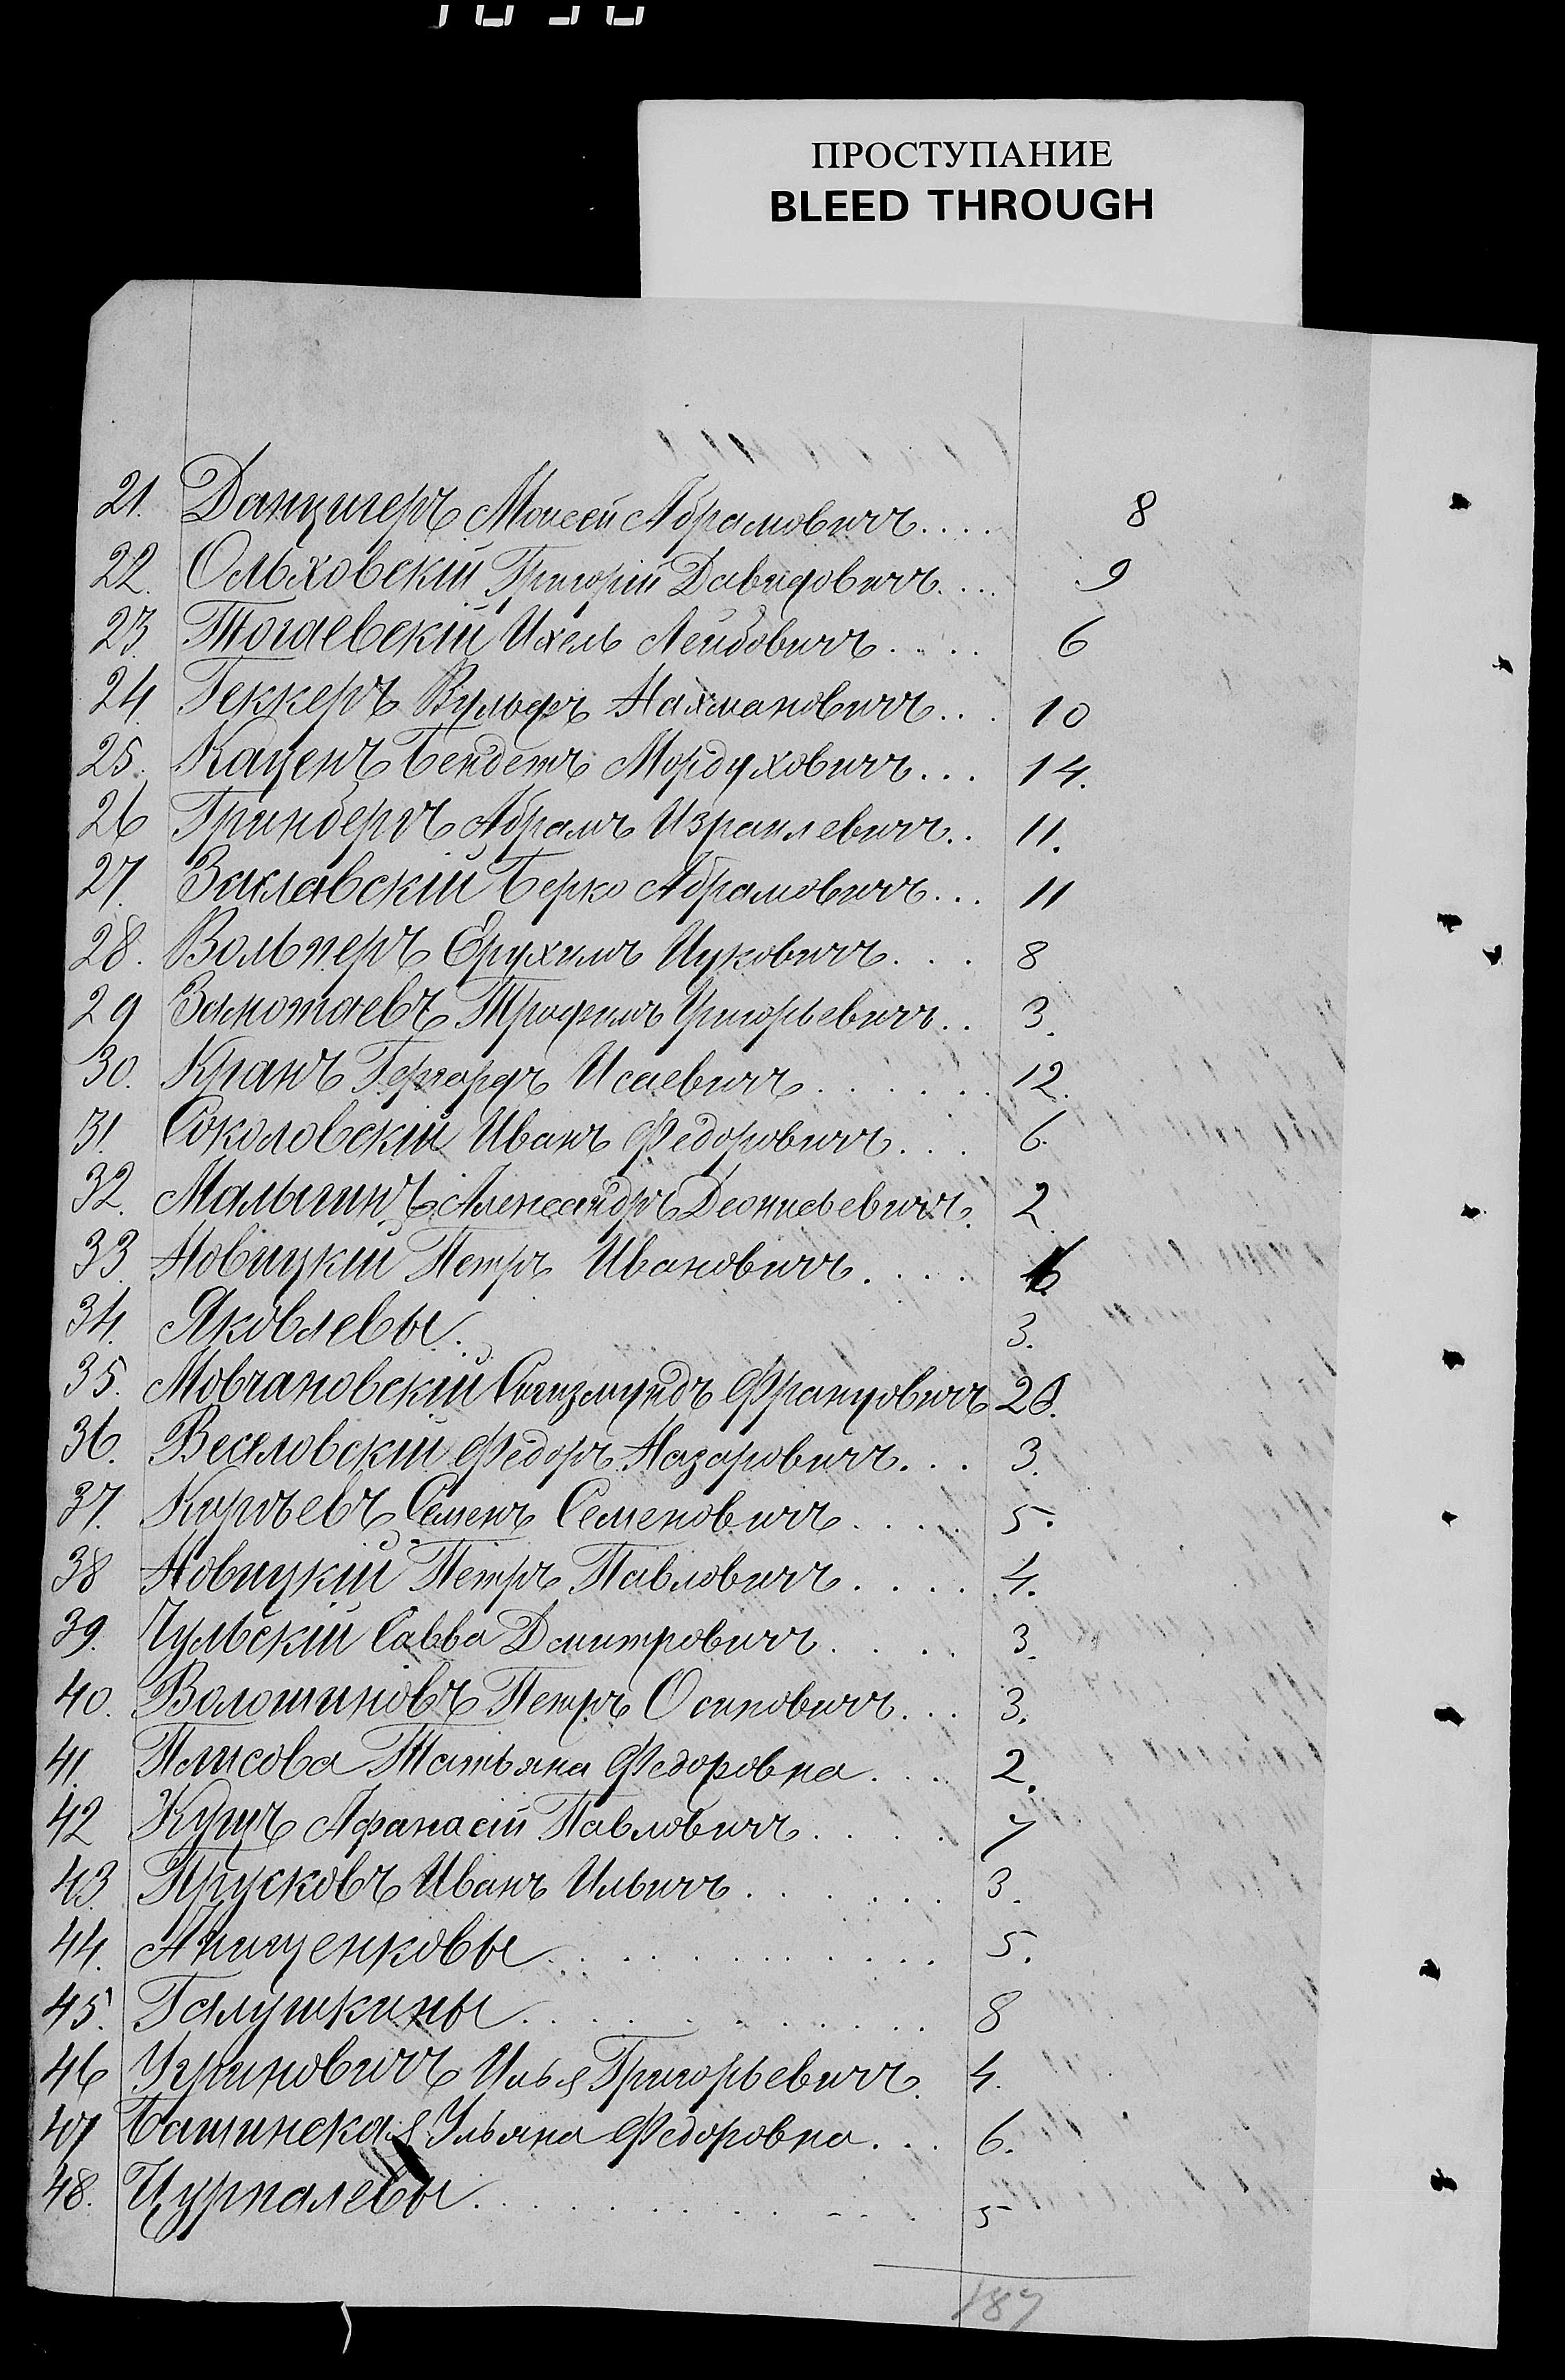 ПРОСТУПАНИЕ
BLEED THROUGH
21. Данцигеръ Моисей Абрамовичъ.... 8
22. Ольховскій Григорій Давидовичъ.... 9
23. Тогаевскій Ихель Лейбовичъ..... 6
24. Геккеръ Вульфъ Нахмановичъ... 10
25. Каценъ Бендетъ Мордуховичъ... 14.
26 Гринбергъ Абрамъ Израилевичъ.. 11.
27. Заславскій Берко Абрамовичъ... 11
28. Вольперъ Ерухимъ Ицковичъ... 8
29 Замотаевъ Трофимъ Григорьевичъ.. 3.
30. Кранъ Гергардъ Исаевичъ...... 12.
31. Соколовскій Иванъ Федоровичъ... 6.
32. Малыгинъ Александръ Деонисьевичъ. 2
33. Новицкій Петръ Ивановичъ.... 6
34. Яковлевы. 3.
35. Мовчановскій Сигизмундъ Францовичъ 20.
36. Веселовскій Федоръ Назаровичъ... 3.
37. Юрьевъ Семенъ Семеновичъ..... 5.
38 Новицкій Петръ Павловичъ.... 4.
39. Чульскій Савва Дмитровичъ.... 3.
40. Волошиновъ Петръ Осиповичъ... 3.
41. Плисова Татьяна Федоровна... 2.
42 Кущъ Афанасій Павловичъ.... 7
43. Прусковъ Иванъ Ильичъ....... 3.
44. Анищенковы........... 5.
45. Галушкины............ 8
46 Угриновичъ Илья Григорьевичъ. 4.
47 Башинская Ульяна Федоровна... 6.
48. Цурпалевы........... 5
187